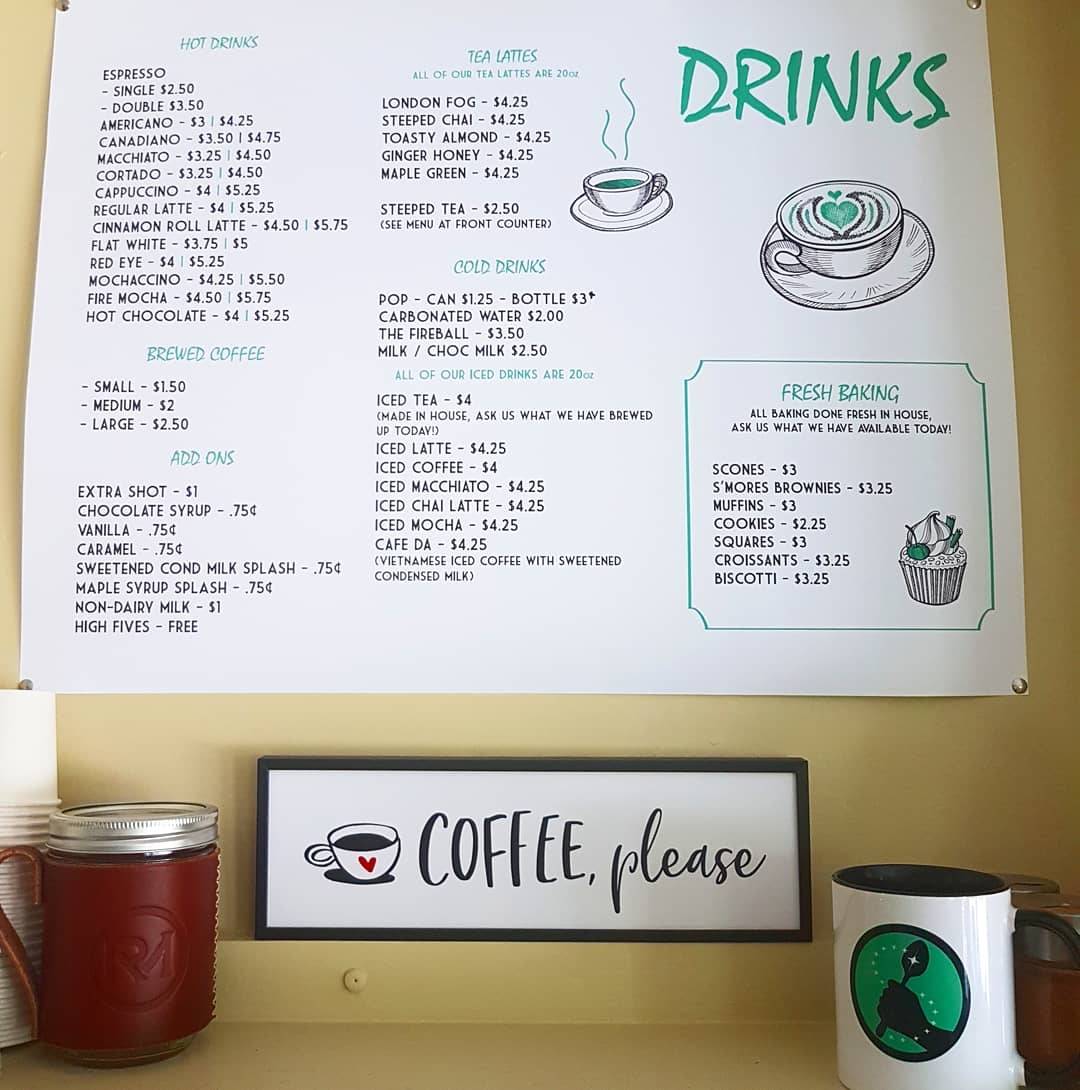 HOT DRINKS
ESPRESSO
- SINGLE $2.50
- DOUBLE $3.50
AMERICANO - $3 | $4.25
CANADIANO - $3.50 | $4.75
MACCHIATO - $3.25 | $4.50
CORTADO - $3.25 | $4.50
CAPPUCCINO - $4 | $5.25
REGULAR LATTE - $4 | $5.25
CINNAMON ROLL LATTE - $4.50 | $5.75
FLAT WHITE - $3.75 | $5
RED EYE - $4 | $5.25
MOCHACCINO - $4.25 | $5.50
FIRE MOCHA - $4.50 | $5.75
HOT CHOCOLATE - $4 | $5.25
BREWED COFFEE
- SMALL - $1.50
- MEDIUM - $2
- LARGE - $2.50
ADD ONS
EXTRA SHOT - $1
CHOCOLATE SYRUP - .75¢
VANILLA - .75¢
CARAMEL - .75¢
SWEETENED COND MILK SPLASH - .75¢
MAPLE SYRUP SPLASH - .75¢
NON-DAIRY MILK - $1
HIGH FIVES - FREE
TEA LATTES
ALL OF OUR TEA LATTES ARE 20oz
LONDON FOG - $4.25
STEEPED CHAI - $4.25
TOASTY ALMOND - $4.25
GINGER HONEY - $4.25
MAPLE GREEN - $4.25
STEEPED TEA - $2.50
(SEE MENU AT FRONT COUNTER)
COLD DRINKS
POP - CAN $1.25 - BOTTLE $3+
CARBONATED WATER $2.00
THE FIREBALL - $3.50
MILK / CHOC MILK $2.50
ALL OF OUR ICED DRINKS ARE 20oz
ICED TEA - $4
(MADE IN HOUSE, ASK US WHAT WE HAVE BREWED
UP TODAY!)
ICED LATTE - $4.25
ICED COFFEE - $4
ICED MACCHIATO - $4.25
ICED CHAI LATTE - $4.25
ICED MOCHA - $4.25
CAFE DA - $4.25
(VIETNAMESE ICED COFFEE WITH SWEETENED
CONDENSED MILK)
DRINKS
FRESH BAKING
ALL BAKING DONE FRESH IN HOUSE,
ASK US WHAT WE HAVE AVAILABLE TODAY!
SCONES - $3
S'MORES BROWNIES - $3.25
MUFFINS - $3
COOKIES - $2.25
SQUARES - $3
CROISSANTS - $3.25
BISCOTTI - $3.25
COFFEE, please
RM